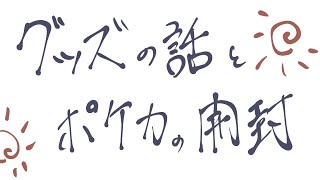 グッズの話と
ポケカの開封